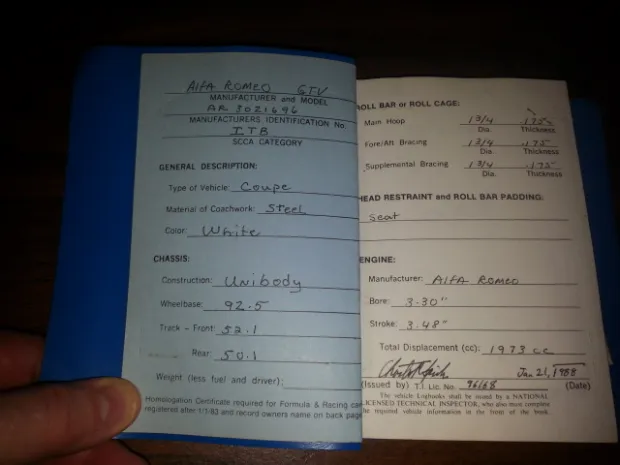 Alfa Romeo GTV
MANUFACTURER and MODEL
AR 3021696
MANUFACTURERS IDENTIFICATION No.
ITB
SCCA CATEGORY
GENERAL DESCRIPTION:
Type of Vehicle: Coupe
Material of Coachwork: Steel
Color: White
CHASSIS:
Construction: Unibody
Wheelbase: 92.5
Track - Front: 52.1
Rear: 50.1
Weight (less fuel and driver):
Homologation Certificate required for Formula & Racing
registered after 1/1/83 and record owners name on back page
ROLL BAR or ROLL CAGE:
Main Hoop 1 3/4 .175"
Dia. Thickness
Fore/Aft Bracing 1 3/4 .175"
Dia. Thickness
Supplemental Bracing 1 3/4 .175"
Dia. Thickness
HEAD RESTRAINT and ROLL BAR PADDING:
Seat
ENGINE:
Manufacturer: Alfa Romeo
Bore: 3.30"
Stroke: 3.48"
Total Displacement (cc): 1973 cc
Jan 21, 1988
(Issued by) T.I. Lic. No. 96168 (Date)
The vehicle Logbooks shall be issued by a NATIONAL
LICENSED TECHNICAL INSPECTOR, who also must complete
the required vehicle information in the front of the book.